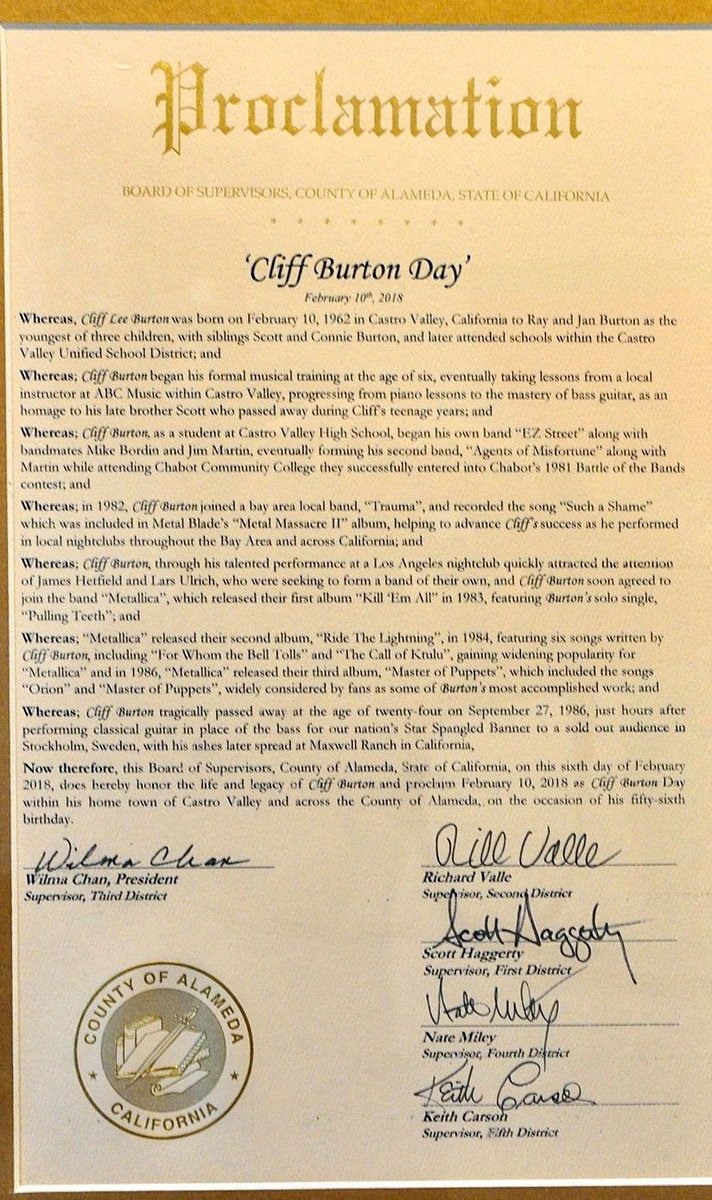 Proclamation
BOARD OF SUPERVISORS, COUNTY OF ALAMEDA, STATE OF CALIFORNIA
* * * * * * * *
‘Cliff Burton Day’
February 10th, 2018
Whereas, Cliff Lee Burton was born on February 10, 1962 in Castro Valley, California to Ray and Jan Burton as the
youngest of three children, with siblings Scott and Connie Burton, and later attended schools within the Castro
Valley Unified School District; and
Whereas; Cliff Burton began his formal musical training at the age of six, eventually taking lessons from a local
instructor at ABC Music within Castro Valley, progressing from piano lessons to the mastery of bass guitar, as an
homage to his late brother Scott who passed away during Cliff's teenage years; and
Whereas; Cliff Burton, as a student at Castro Valley High School, began his own band “EZ Street” along with
bandmates Mike Bordin and Jim Martin, eventually forming his second band, “Agents of Misfortune” along with
Martin while attending Chabot Community College they successfully entered into Chabot's 1981 Battle of the Bands
contest; and
Whereas; in 1982, Cliff Burton joined a bay area local band, “Trauma”, and recorded the song “Such a Shame”
which was included in Metal Blade's “Metal Massacre II” album, helping to advance Cliff's success as he performed
in local nightclubs throughout the Bay Area and across California; and
Whereas; Cliff Burton, through his talented performance at a Los Angeles nightclub quickly attracted the attention
of James Hetfield and Lars Ulrich, who were seeking to form a band of their own, and Cliff Burton soon agreed to
join the band “Metallica”, which released their first album “Kill 'Em All” in 1983, featuring Burton's solo single,
“Pulling Teeth”; and
Whereas; “Metallica” released their second album, “Ride The Lightning”, in 1984, featuring six songs written by
Cliff Burton, including “For Whom the Bell Tolls” and “The Call of Ktulu”, gaining widening popularity for
“Metallica” and in 1986, “Metallica” released their third album, “Master of Puppets”, which included the songs
“Orion” and “Master of Puppets”, widely considered by fans as some of Burton's most accomplished work; and
Whereas; Cliff Burton tragically passed away at the age of twenty-four on September 27, 1986, just hours after
performing classical guitar in place of the bass for our nation's Star Spangled Banner to a sold out audience in
Stockholm, Sweden, with his ashes later spread at Maxwell Ranch in California,
Now therefore, this Board of Supervisors, County of Alameda, State of California, on this sixth day of February
2018, does hereby honor the life and legacy of Cliff Burton and proclaim February 10, 2018 as Cliff Burton Day
within his home town of Castro Valley and across the County of Alameda, on the occasion of his fifty-sixth
birthday.
Wilma Chan
Wilma Chan, President
Supervisor, Third District
Rill Valle
Richard Valle
Supervisor, Second District
Scott Haggerty
Scott Haggerty
Supervisor, First District
Nate Miley
Nate Miley
Supervisor, Fourth District
Keith Carson
Keith Carson
Supervisor, Fifth District
COUNTY OF ALAMEDA
CALIFORNIA